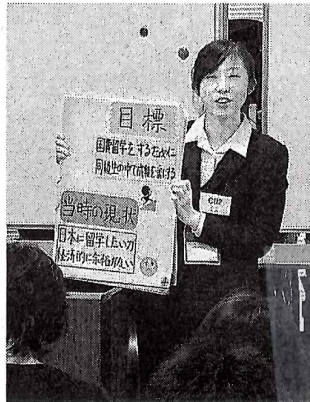 目標
国費留学をするために
同級生の中で成績を
当時の現状
日本に留学したいが
経済的に余裕がない